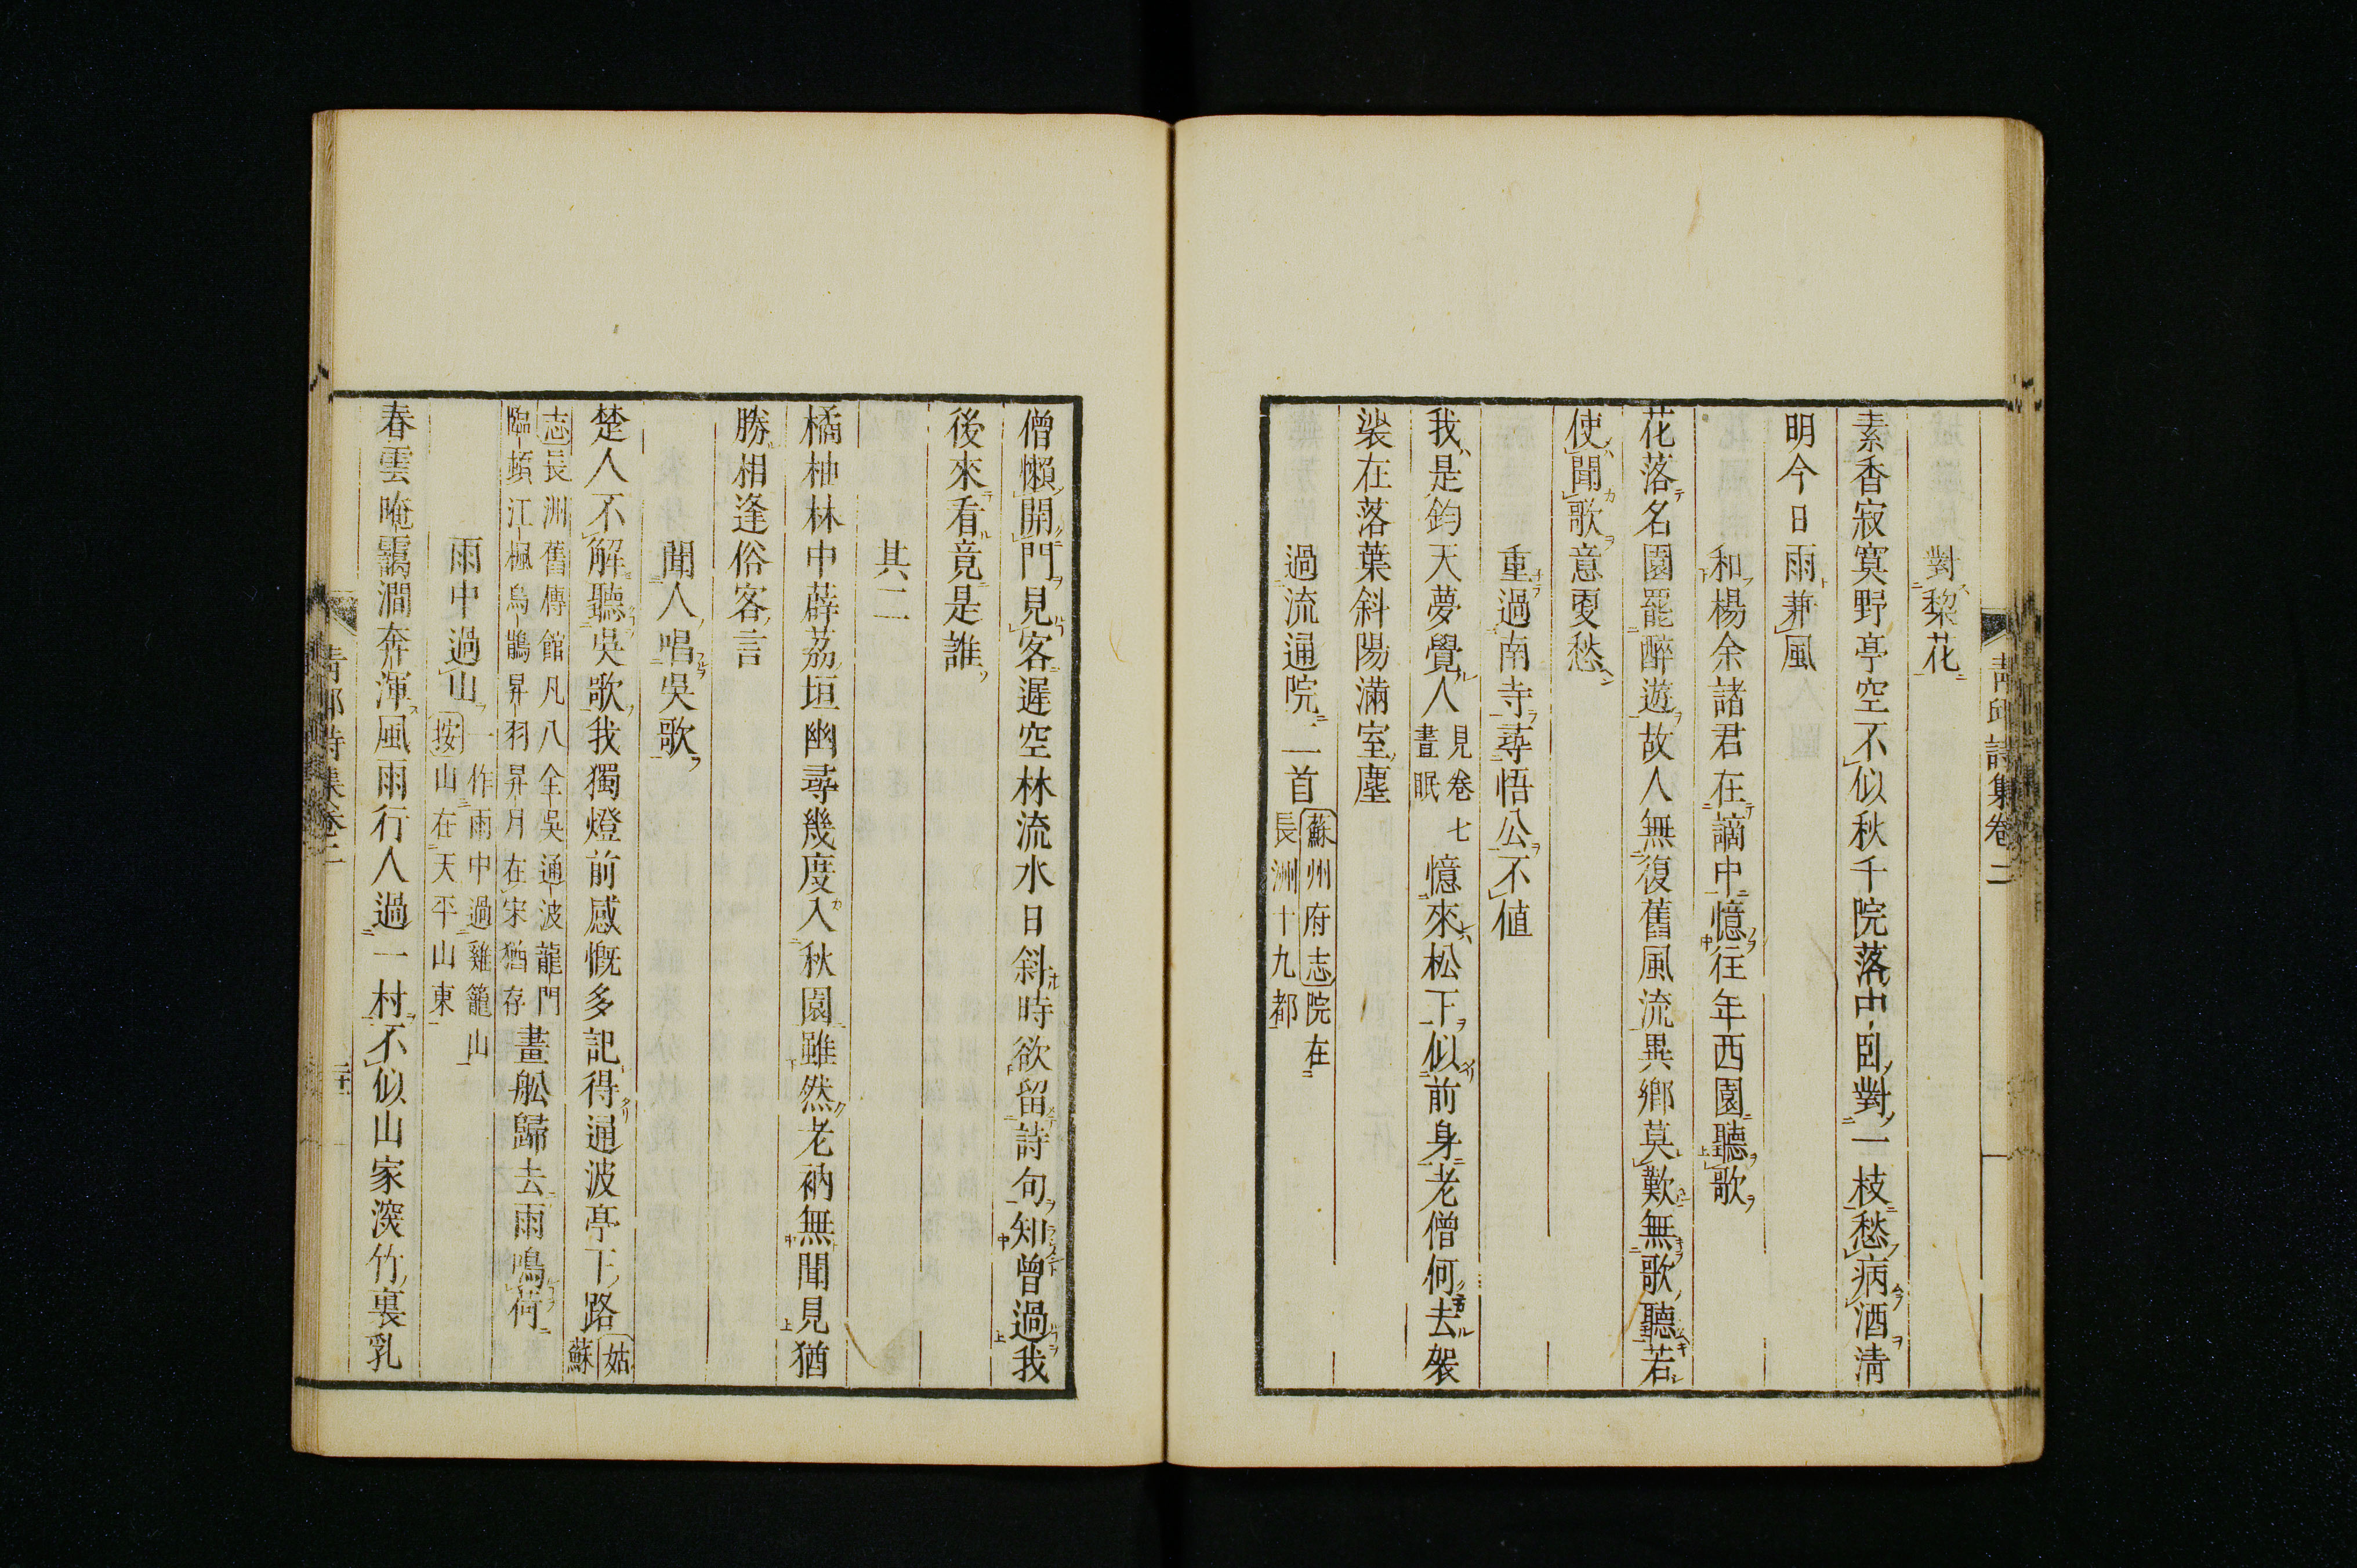 青邱詩集卷二
對棃花
素香寂寞野亭空不似秋千院落中臥對一枝愁病酒淸
明今日雨兼風
和楊余諸君在謫中憶往年西園聽歌
花落名園罷醉遊故人無復舊風流異鄉莫歎無歌聽若
使聞歌意更愁
重過南寺尋悟公不値
我是鈞天夢覺人見卷七晝眠憶來松下似前身老僧何去袈
裟在落葉斜陽滿室塵
過流通院二首蘇州府志院在長洲十九都
僧懶開門見客遲空林流水日斜時欲留詩句知曾過我
後來看竟是誰
其二
橘柚林中薜荔垣幽尋幾度入秋園雖然老衲無聞見猶
勝相逢俗客言
聞人唱吳歌
楚人不解聽吳歌我獨燈前感慨多記得通波亭下路姑蘇
志長洲舊傳館凡八全吳通波龍門
臨頓江楓烏鵲昇羽昇月在宋猶存畫舩歸去雨鳴荷
雨中過山一作雨中過雞籠山按山在天平山東
春雲晻靄澗奔渾風雨行人過一村不似山家深竹裏乳
青邱詩集卷二